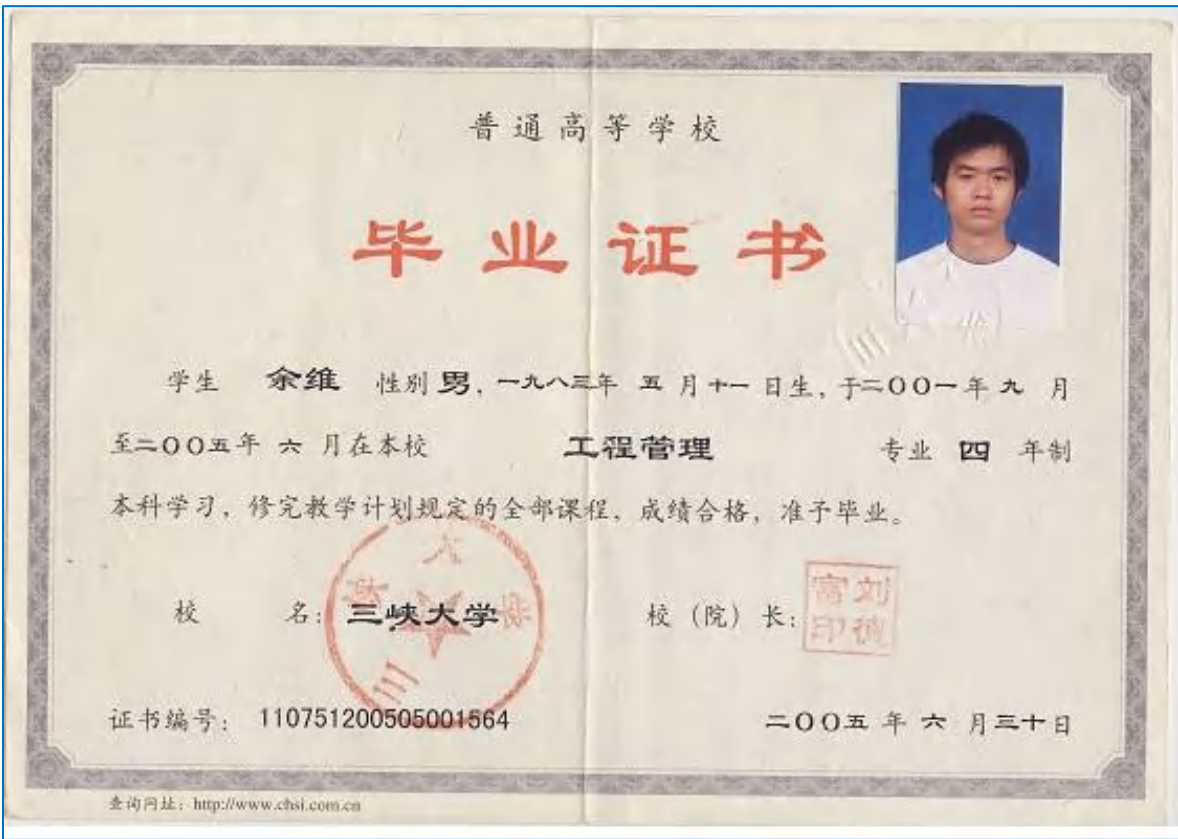 普通高等学校
毕业证书
学生 余维 性别 男，一九八三年 五 月 十一 日生，于二〇〇一年 九 月
至二〇〇五年 六 月在本校 工程管理 专业 四 年制
本科学习，修完教学计划规定的全部课程，成绩合格，准予毕业。
校 名：三峡大学 校（院）长：
三峡大学
刘德富印
证书编号：110751200505001564 二〇〇五 年 六 月三十日
查询网址：http://www.chsi.com.cn